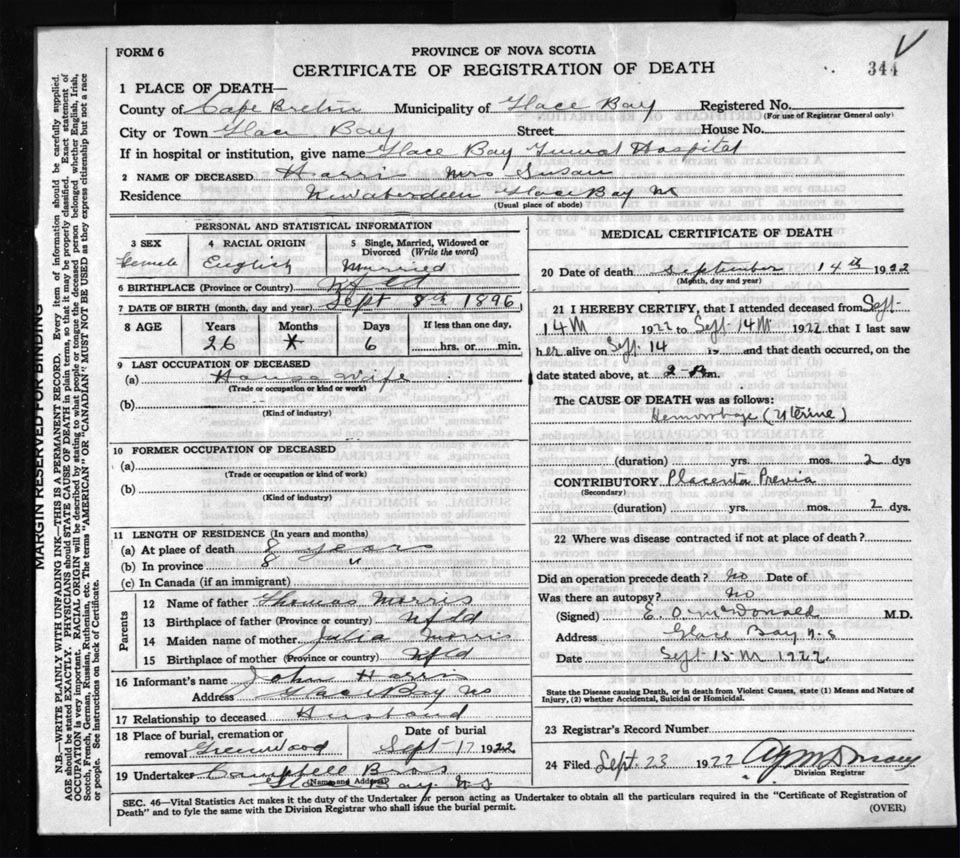 FORM 6
PROVINCE OF NOVA SCOTIA
CERTIFICATE OF REGISTRATION OF DEATH
344
1 PLACE OF DEATH—
County of Cape Breton Municipality of Glace Bay Registered No.
(For use of Registrar General only)
City or Town Glace Bay Street House No.
If in hospital or institution, give name Glace Bay General Hospital
2 NAME OF DECEASED Harris Mrs Susan
Residence New Aberdeen Glace Bay NS
(Usual place of abode)
PERSONAL AND STATISTICAL INFORMATION
3 SEX 4 RACIAL ORIGIN 5 Single, Married, Widowed or Divorced (Write the word)
Female English Married
6 BIRTHPLACE (Province or Country) Nfld
7 DATE OF BIRTH (month, day and year) Sept 8th 1896
8 AGE Years Months Days If less than one day,
26 * 6 hrs. or min.
9 LAST OCCUPATION OF DECEASED
(a) House wife
(Trade or occupation or kind of work)
(b)
(Kind of industry)
10 FORMER OCCUPATION OF DECEASED
(a)
(Trade or occupation or kind of work)
(b)
(Kind of industry)
11 LENGTH OF RESIDENCE (In years and months)
(a) At place of death 8 years
(b) In province 8 "
(c) In Canada (if an immigrant)
Parents
12 Name of father Thomas Morris
13 Birthplace of father (Province or country) Nfld
14 Maiden name of mother Julia Morris
15 Birthplace of mother (Province or country) Nfld
16 Informant's name John Harris
Address Glace Bay NS
17 Relationship to deceased Husband
18 Place of burial, cremation or removal Greenwood Date of burial Sept 17 1922
19 Undertaker Campbell Bros
(Name and Address)
Glace Bay N S
MEDICAL CERTIFICATE OF DEATH
20 Date of death September 14th 1922
(Month, day and year)
21 I HEREBY CERTIFY, that I attended deceased from Sept
14th 1922 to Sept 14th 1922 that I last saw
her alive on Sept 14 19 and that death occurred, on the
date stated above, at 2 m.
The CAUSE OF DEATH was as follows:
Hemorrhage (Uterine)
(duration) yrs. mos. 2 dys
CONTRIBUTORY Placenta Previa
(Secondary)
(duration) yrs. mos. 2 dys.
22 Where was disease contracted if not at place of death?
Did an operation precede death? No Date of
Was there an autopsy? No
(Signed) E. O. McDonald M.D.
Address Glace Bay N.S
Date Sept 15th 1922
State the Disease causing Death, or in death from Violent Causes, state (1) Means and Nature of
Injury, (2) whether Accidental, Suicidal or Homicidal.
23 Registrar's Record Number
24 Filed Sept 23 1922
Division Registrar
SEC. 46—Vital Statistics Act makes it the duty of the Undertaker or person acting as Undertaker to obtain all the particulars required in the "Certificate of Registration of
Death" and to fyle the same with the Division Registrar who shall issue the burial permit. (OVER)
MARGIN RESERVED FOR BINDING
N.B.—WRITE PLAINLY WITH UNFADING INK—THIS IS A PERMANENT RECORD. Every item of information should be carefully supplied.
AGE should be stated EXACTLY. PHYSICIANS should STATE CAUSE OF DEATH in plain terms, so that it may be properly classified. Exact statement of
OCCUPATION is very important. RACIAL ORIGIN will be described by stating to what people or tongue the deceased person belonged whether English, Irish,
Scotch, French, German, Russian, Ruthenian, etc. The terms "AMERICAN" OR "CANADIAN" MUST NOT BE USED as they express citizenship but not a race
or people. See instructions on back of Certificate.